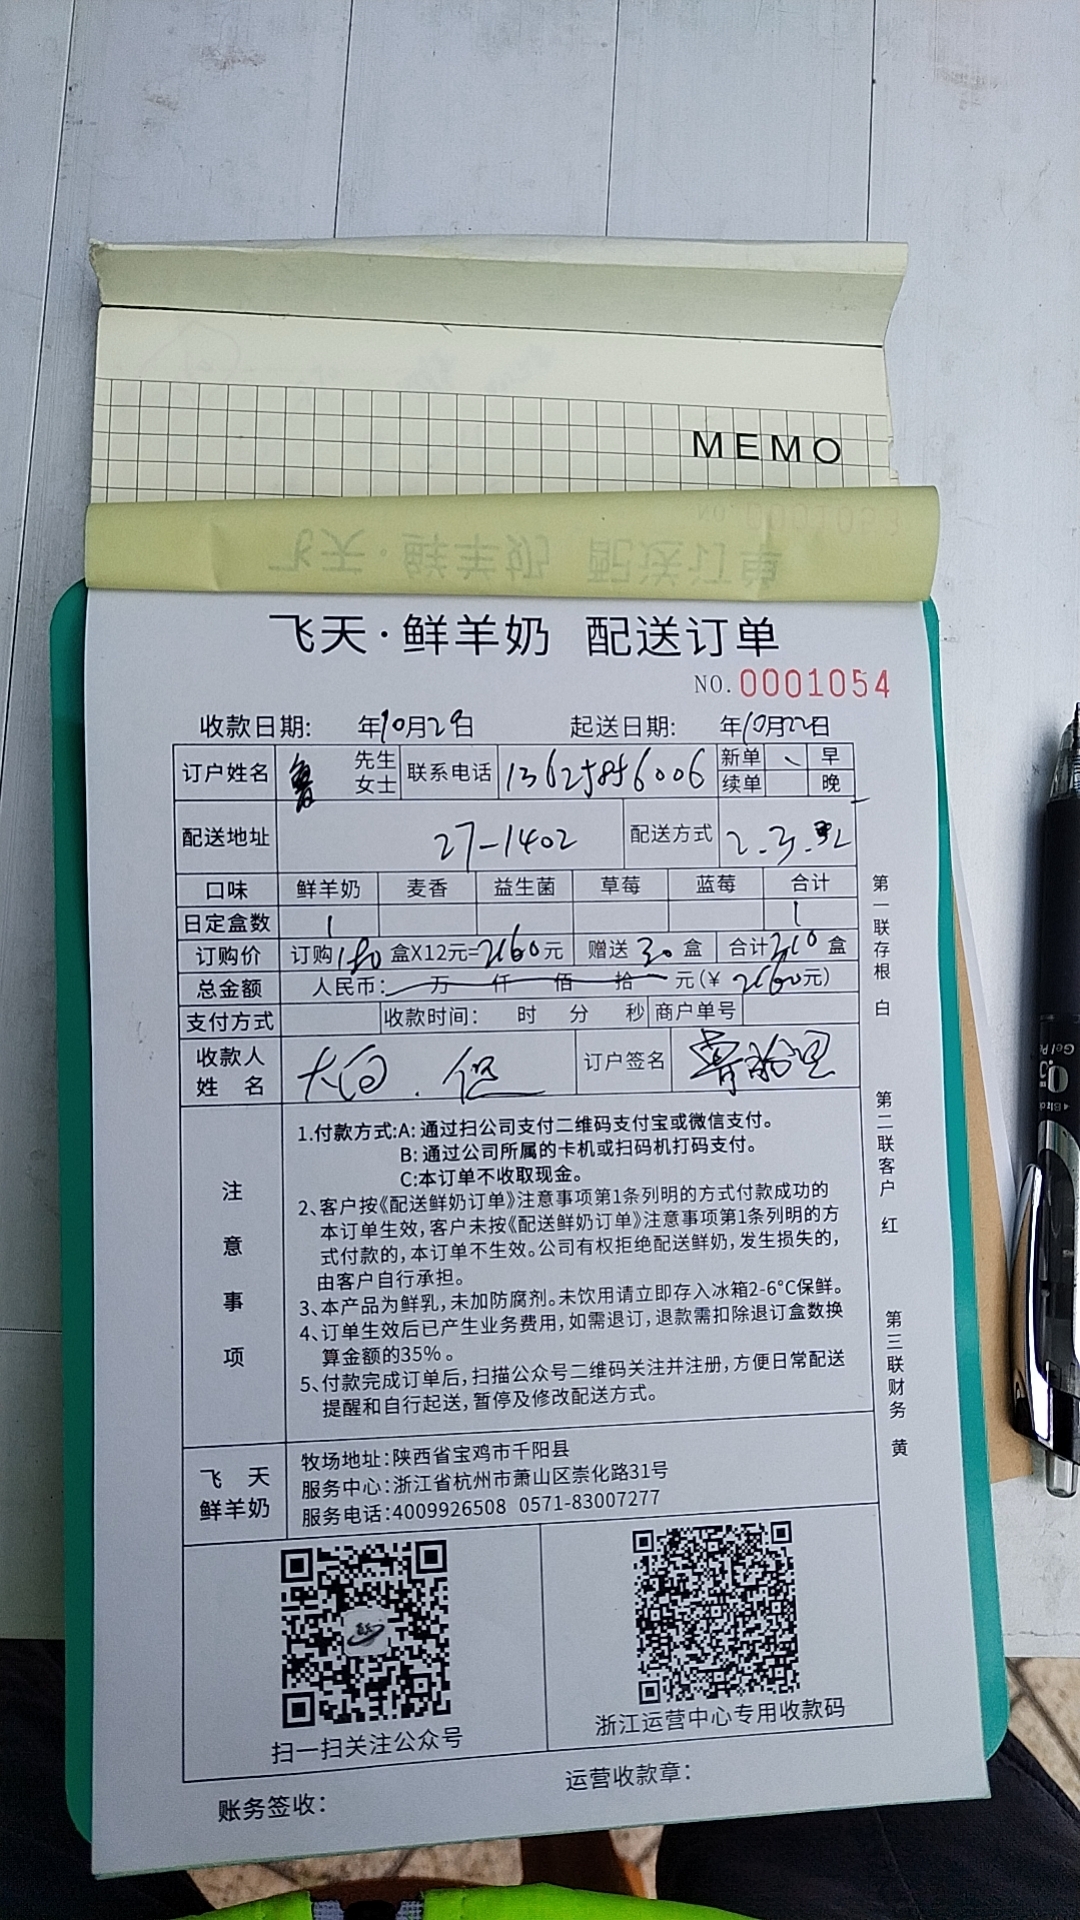 MEMO
飞天·鲜羊奶 配送订单
NO.0001054
收款日期: 年10月29日 起送日期: 年10月22日
订户姓名 先生 女士 联系电话 新单 、 早
续单 晚
配送地址 27-1402 配送方式 2.3.
口味 鲜羊奶 麦香 益生菌 草莓 蓝莓 合计
日定盒数 1 1
订购价 订购180盒X12元=2160元 赠送30盒 合计210盒
总金额 人民币: 万 仟 佰 拾 元(¥2160元)
支付方式 收款时间: 时 分 秒 商户单号
收款人姓名 大白. 订户签名
注意事项
1.付款方式:A: 通过扫公司支付二维码支付宝或微信支付。
B: 通过公司所属的卡机或扫码机打码支付。
C:本订单不收取现金。
2、客户按《配送鲜奶订单》注意事项第1条列明的方式付款成功的
本订单生效,客户未按《配送鲜奶订单》注意事项第1条列明的方
式付款的,本订单不生效。公司有权拒绝配送鲜奶,发生损失的,
由客户自行承担。
3、本产品为鲜乳,未加防腐剂。未饮用请立即存入冰箱2-6°C保鲜。
4、订单生效后已产生业务费用,如需退订,退款需扣除退订盒数换
算金额的35%。
5、付款完成订单后,扫描公众号二维码关注并注册,方便日常配送
提醒和自行起送,暂停及修改配送方式。
飞天鲜羊奶
牧场地址:陕西省宝鸡市千阳县
服务中心:浙江省杭州市萧山区崇化路31号
服务电话:4009926508 0571-83007277
扫一扫关注公众号
浙江运营中心专用收款码
账务签收:
运营收款章:
第一联存根 白
第二联客户 红
第三联财务 黄